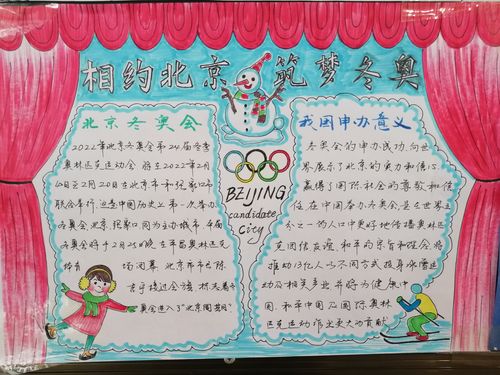 相约北京 筑梦冬奥
北京冬奥会
2022年北京冬奥会第24届冬季
奥林匹克运动会 将在2022年2月
4日至2月20日在北京市和张家口市
联合举行,这是中国历史上第一次举办
冬奥会 北京、张家口同为主办城市
冬奥会将于2月 晚在 奥林匹克
体育 场闭幕 北京市市长陈
吉宁接过会旗 标志着冬
奥会进入了"北京周期"
BEIJING
candidate
City
我国申办意义
冬奥会的申办成功,向世
界展示了北京的实力和信心
赢得了国际社会的尊敬和信
任 在中国举办冬奥会 在世界五
分之一的人口中更好地传播奥林匹
克团结友谊 和平的宗旨和 会将
推动13亿人以不同方式投身冰雪运
动及相关产业并将为健康中
国 和平中国及国际奥林
匹克运动作出更大的贡献